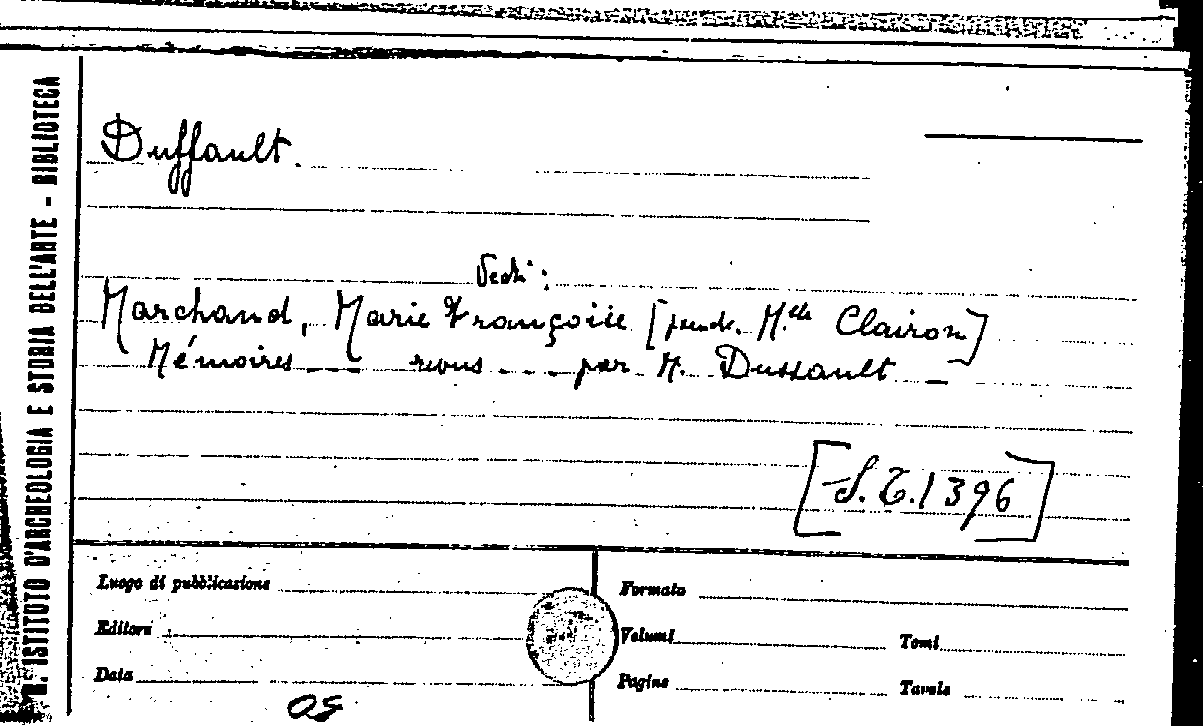 R. ISTITUTO D'ARCHEOLOGIA E STORIA DELL'ARTE - BIBLIOTECA
Duffault.
Vedi:
Marchand, Marie Françoise [pseud. M.elle Clairon]
Mémoires --- revus --- par M. Dussault -
[S.T.1396]
Luogo di pubblicazione
Formato
Editore
Volumi
Tomi
Data
Pagine
Tavole
OS